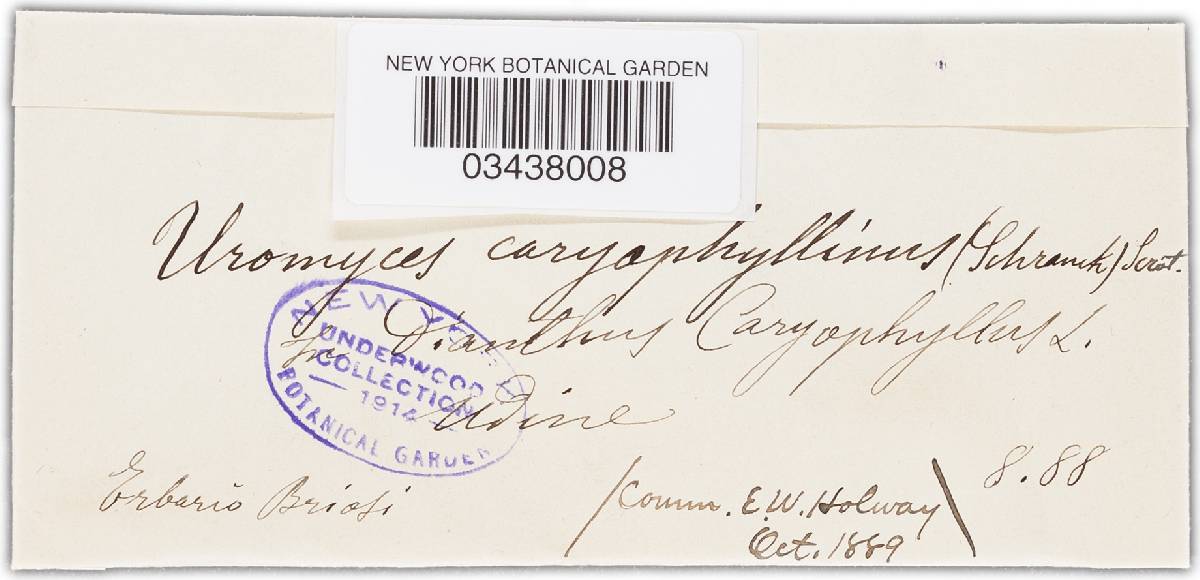 NEW YORK BOTANICAL GARDEN
03438008
Uromyces caryophyllinus (Schrank) Scrot.
In Dianthus Caryophyllus L.
Udine
NEW YORK
UNDERWOOD
COLLECTION
— 1914 —
BOTANICAL GARDEN
8.88
Erbario Briosi
(Comm. E.W. Holway)
Oct. 1889